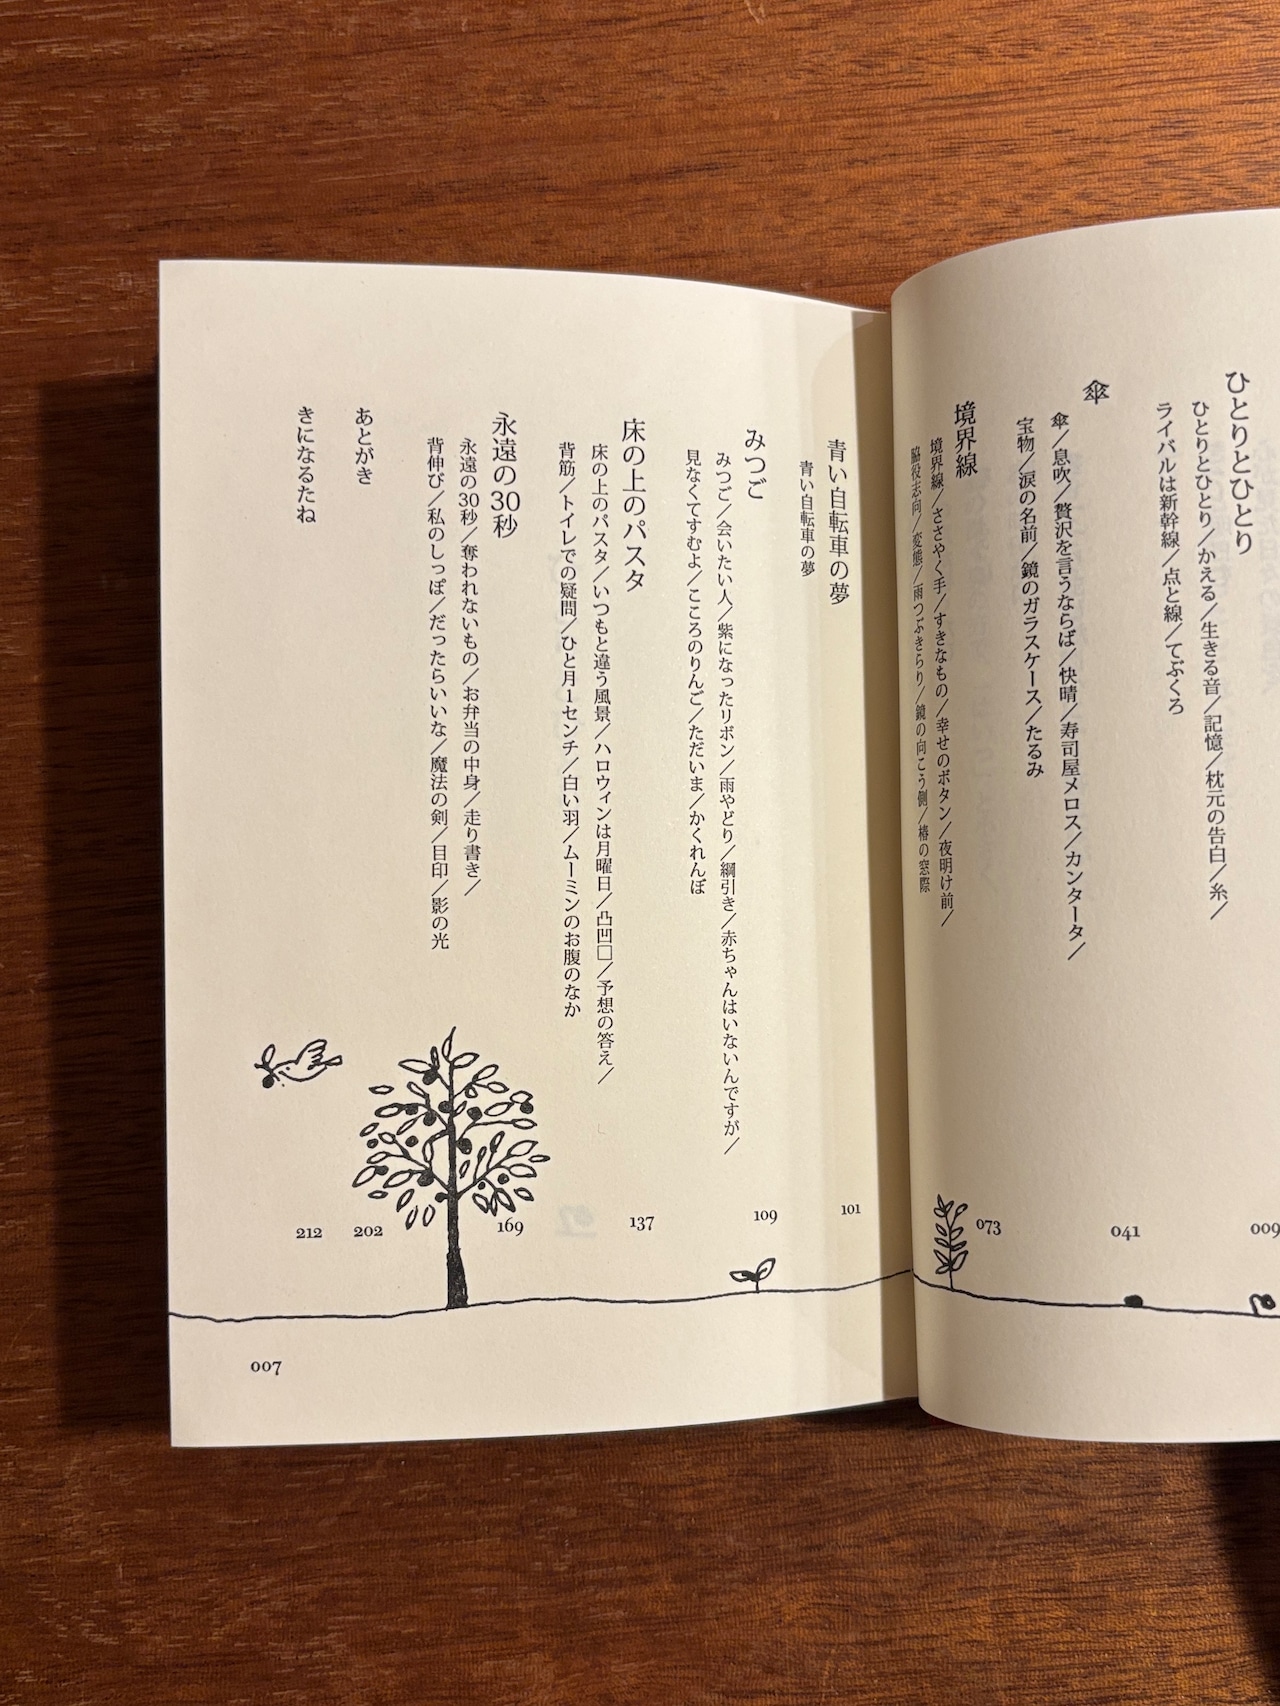 ひとりとひとり
ひとりとひとり／かえる／生きる音／記憶／枕元の告白／糸／
ライバルは新幹線／点と線／てぶくろ
009
傘
傘／息吹／贅沢を言うならば／快晴／寿司屋メロス／カンタータ／
宝物／涙の名前／鏡のガラスケース／たるみ
041
境界線
境界線／ささやく手／すきなもの／幸せのボタン／夜明け前／
脇役志向／変態／雨つぶきらり／鏡の向こう側／椿の窓際
073
青い自転車の夢
青い自転車の夢
101
みつご
みつご／会いたい人／紫になったリボン／雨やどり／綱引き／赤ちゃんはいないんですが／
見なくてすむよ／こころのりんご／ただいま／かくれんぼ
109
床の上のパスタ
床の上のパスタ／いつもと違う風景／ハロウィンは月曜日／凸凹□／予想の答え／
背筋／トイレでの疑問／ひと月1センチ／白い羽／ムーミンのお腹のなか
137
永遠の30秒
永遠の30秒／奪われないもの／お弁当の中身／走り書き／
背伸び／私のしっぽ／だったらいいな／魔法の剣／目印／影の光
169
あとがき
202
きになるたね
212
007